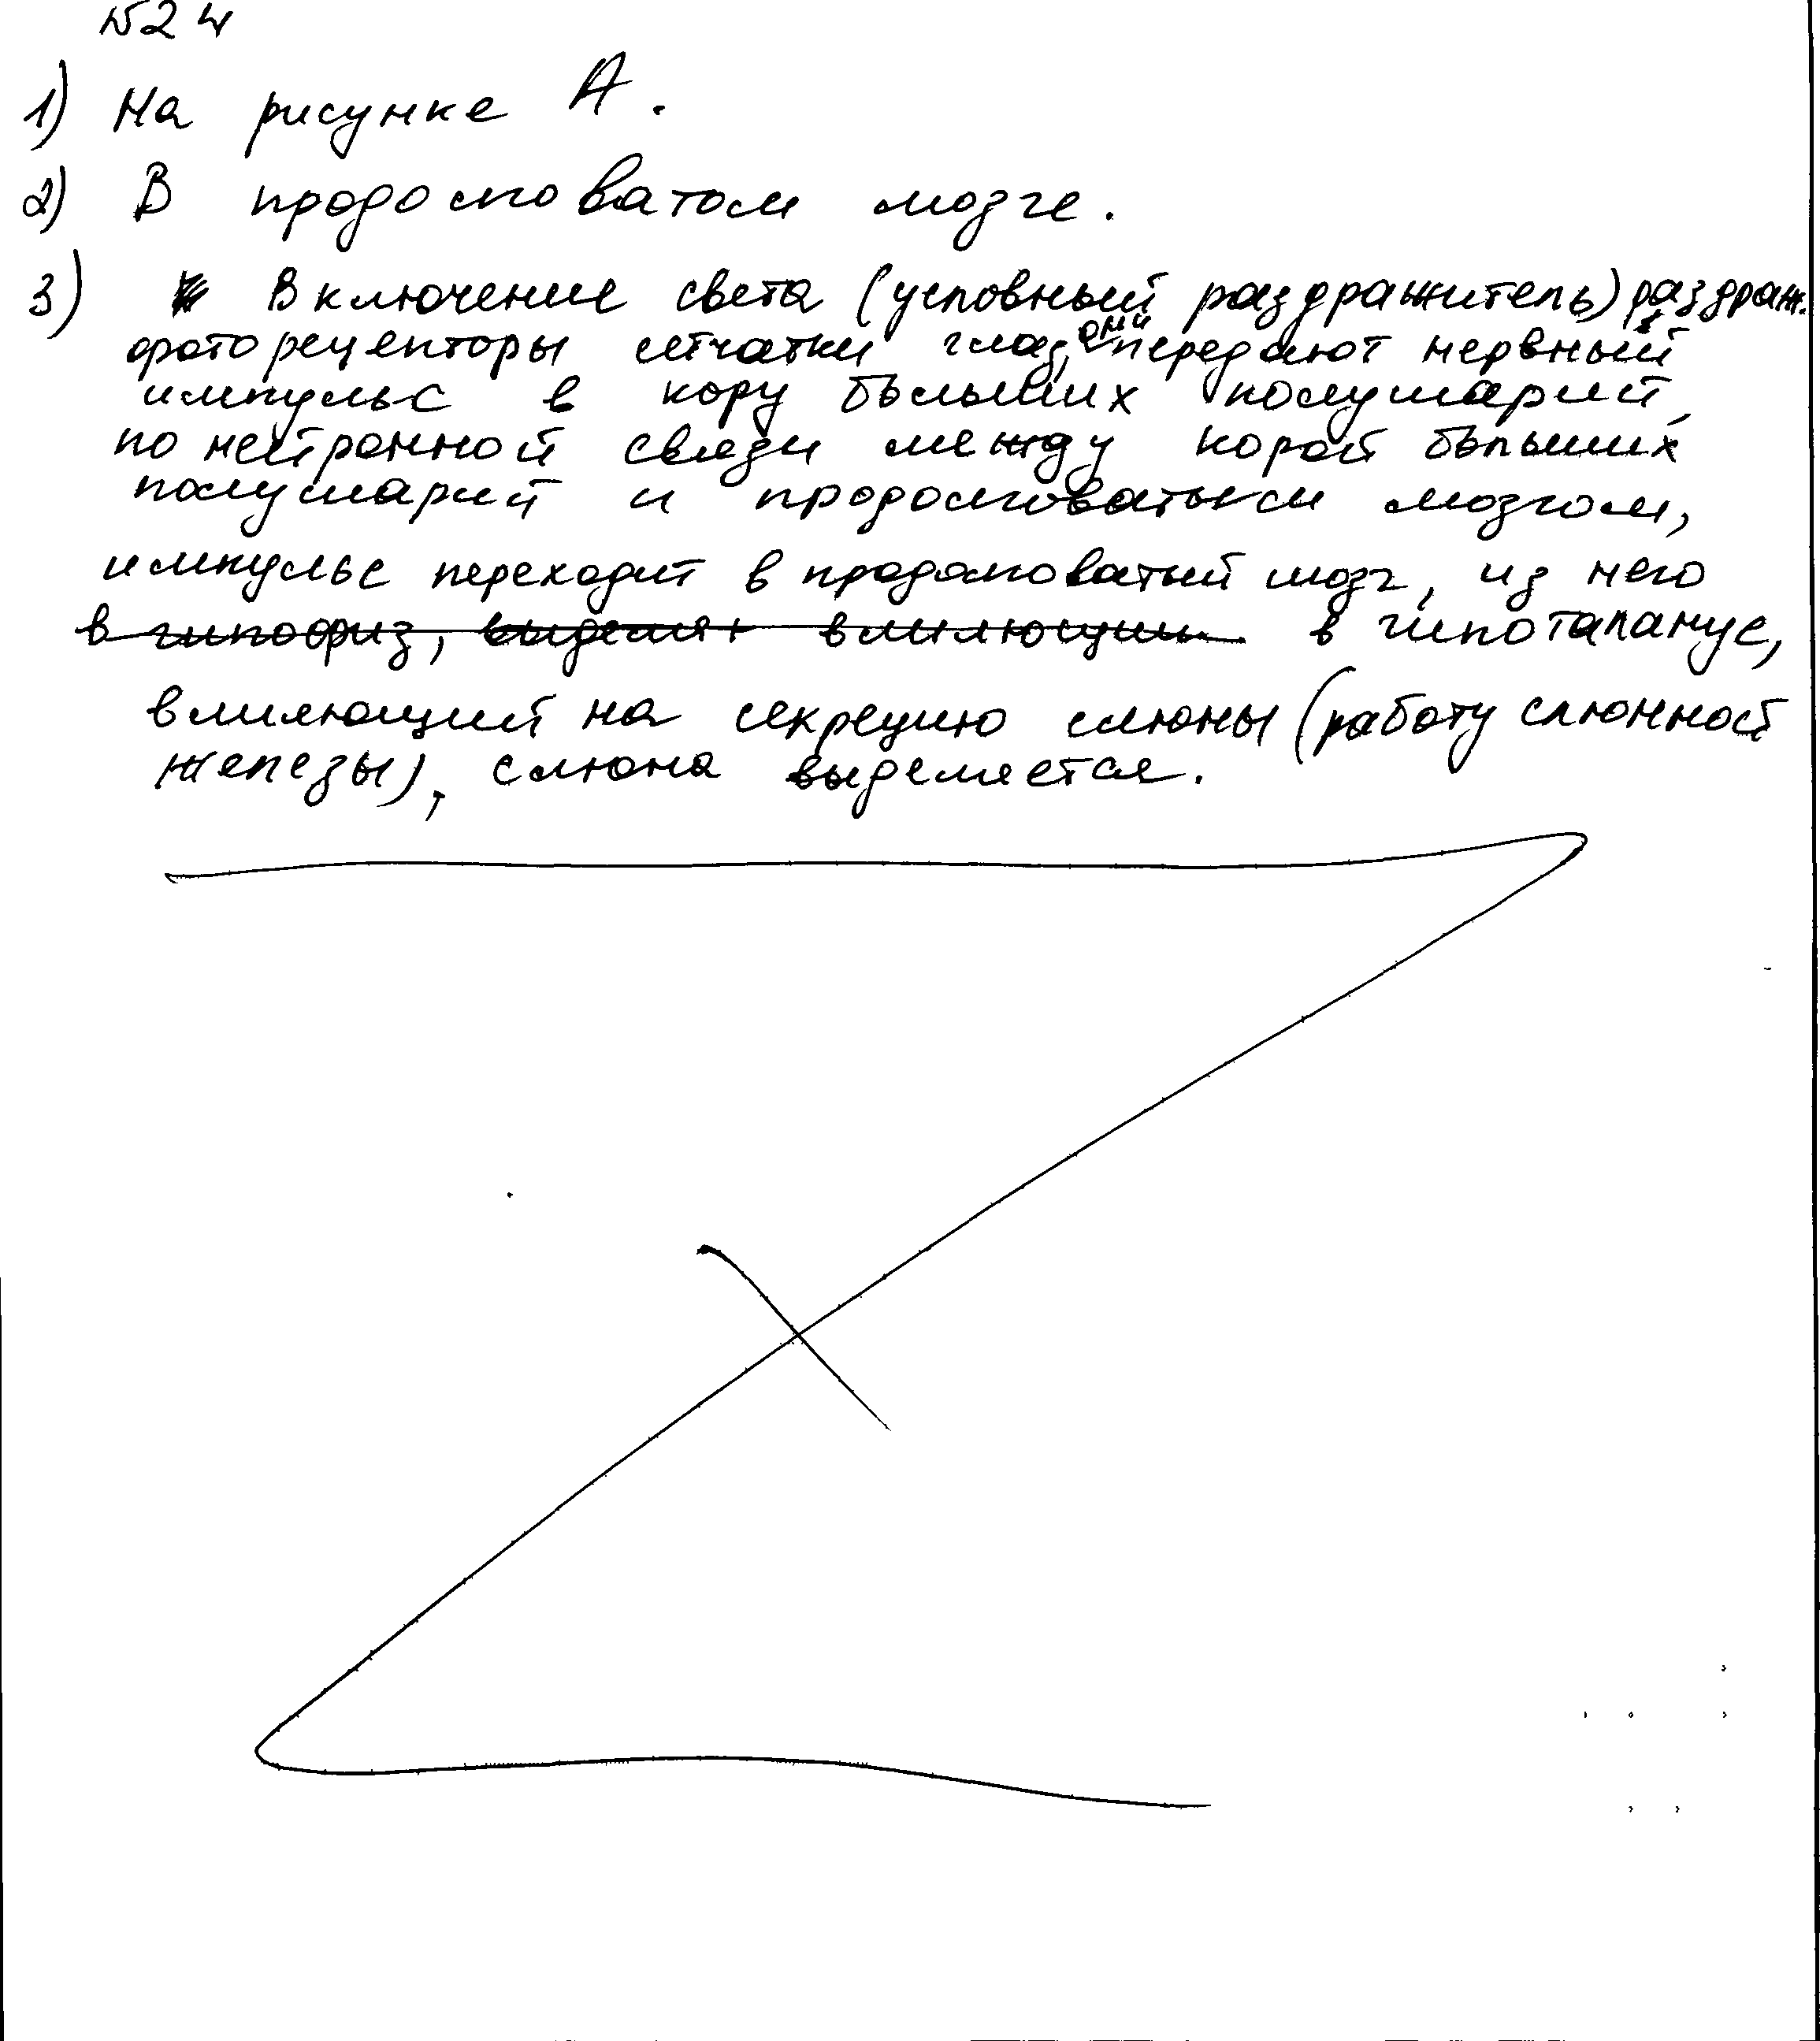 №24
1) На рисунке А.
2) В продолговатом мозге.
3) Включение света (условный раздражитель) раздраж.
фоторецепторы сетчатки глаз, они передают нервный
импульс в кору больших полушарий,
по нейронной связи между корой больших
полушарий и продолговатым мозгом,
импульс переходит в продолговатый мозг, из него
в гипофиз, в гипоталамус,
влияющий на секрецию слюны (работу слюнной
железы), слюна выделяется.